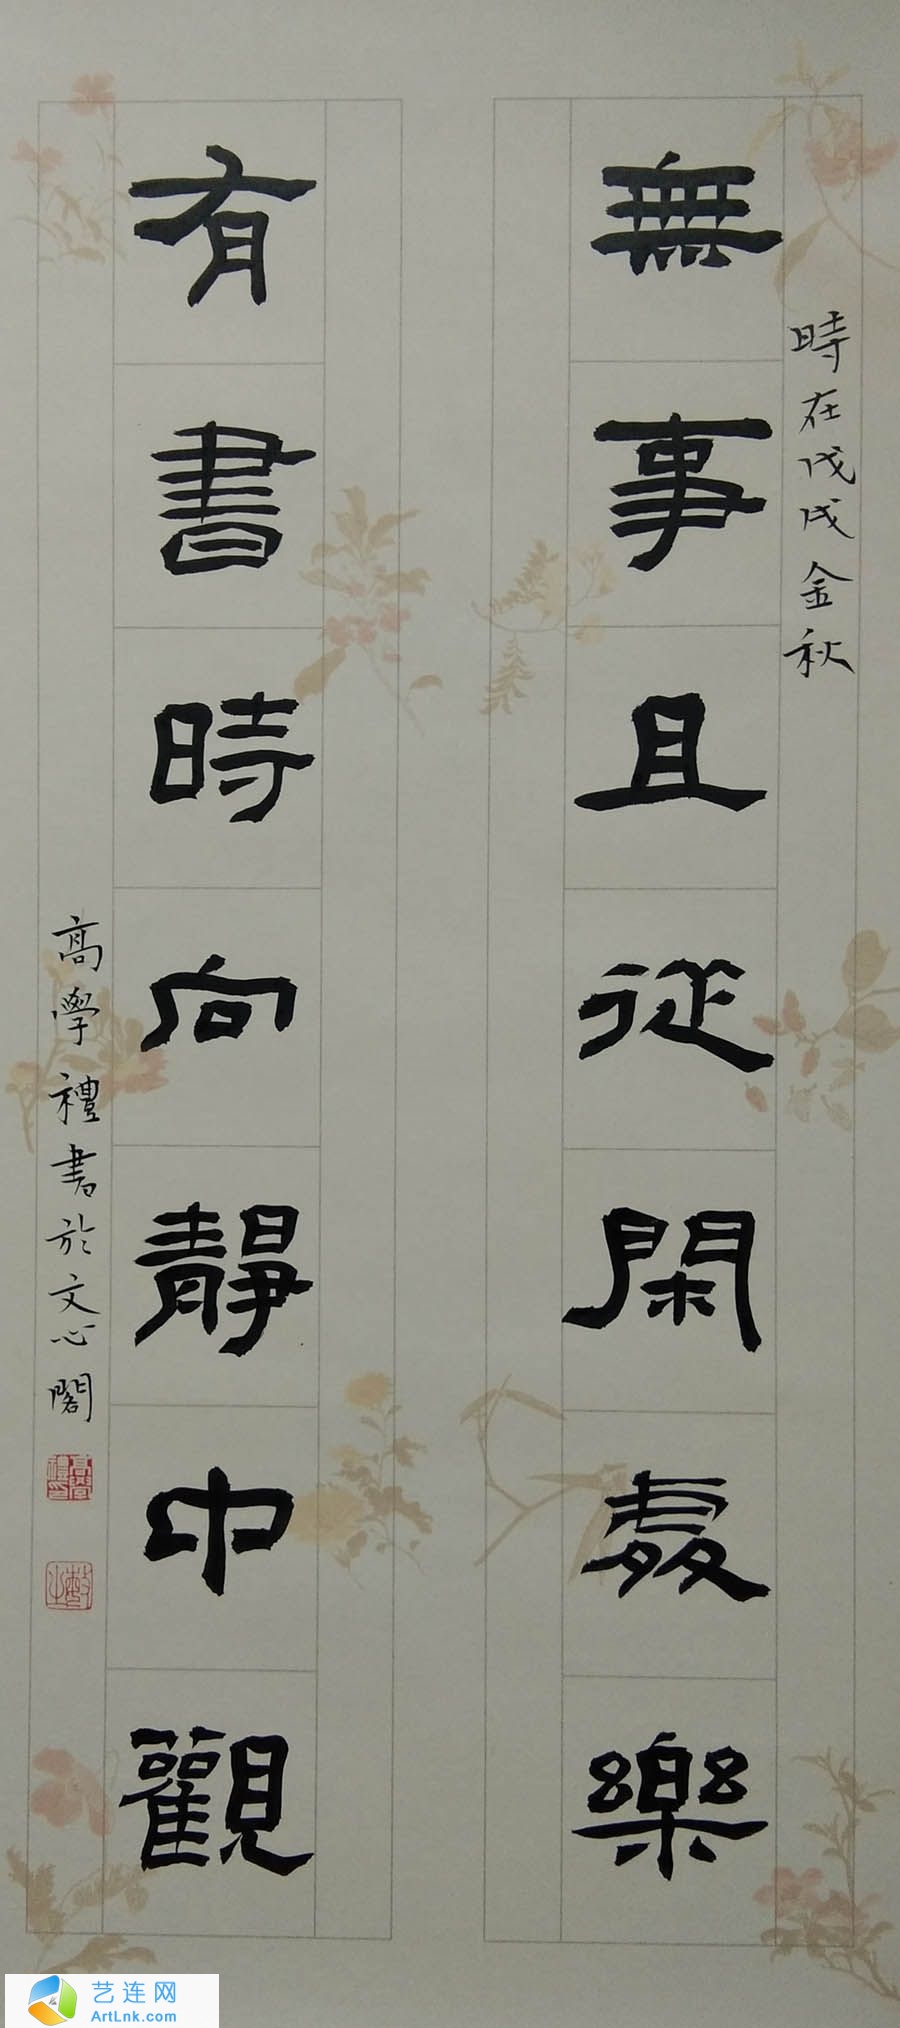 時在戊戌金秋
無事且從閑處樂
有書時向靜中觀
高學禮書於文心閣
艺连网
ArtLnk.com